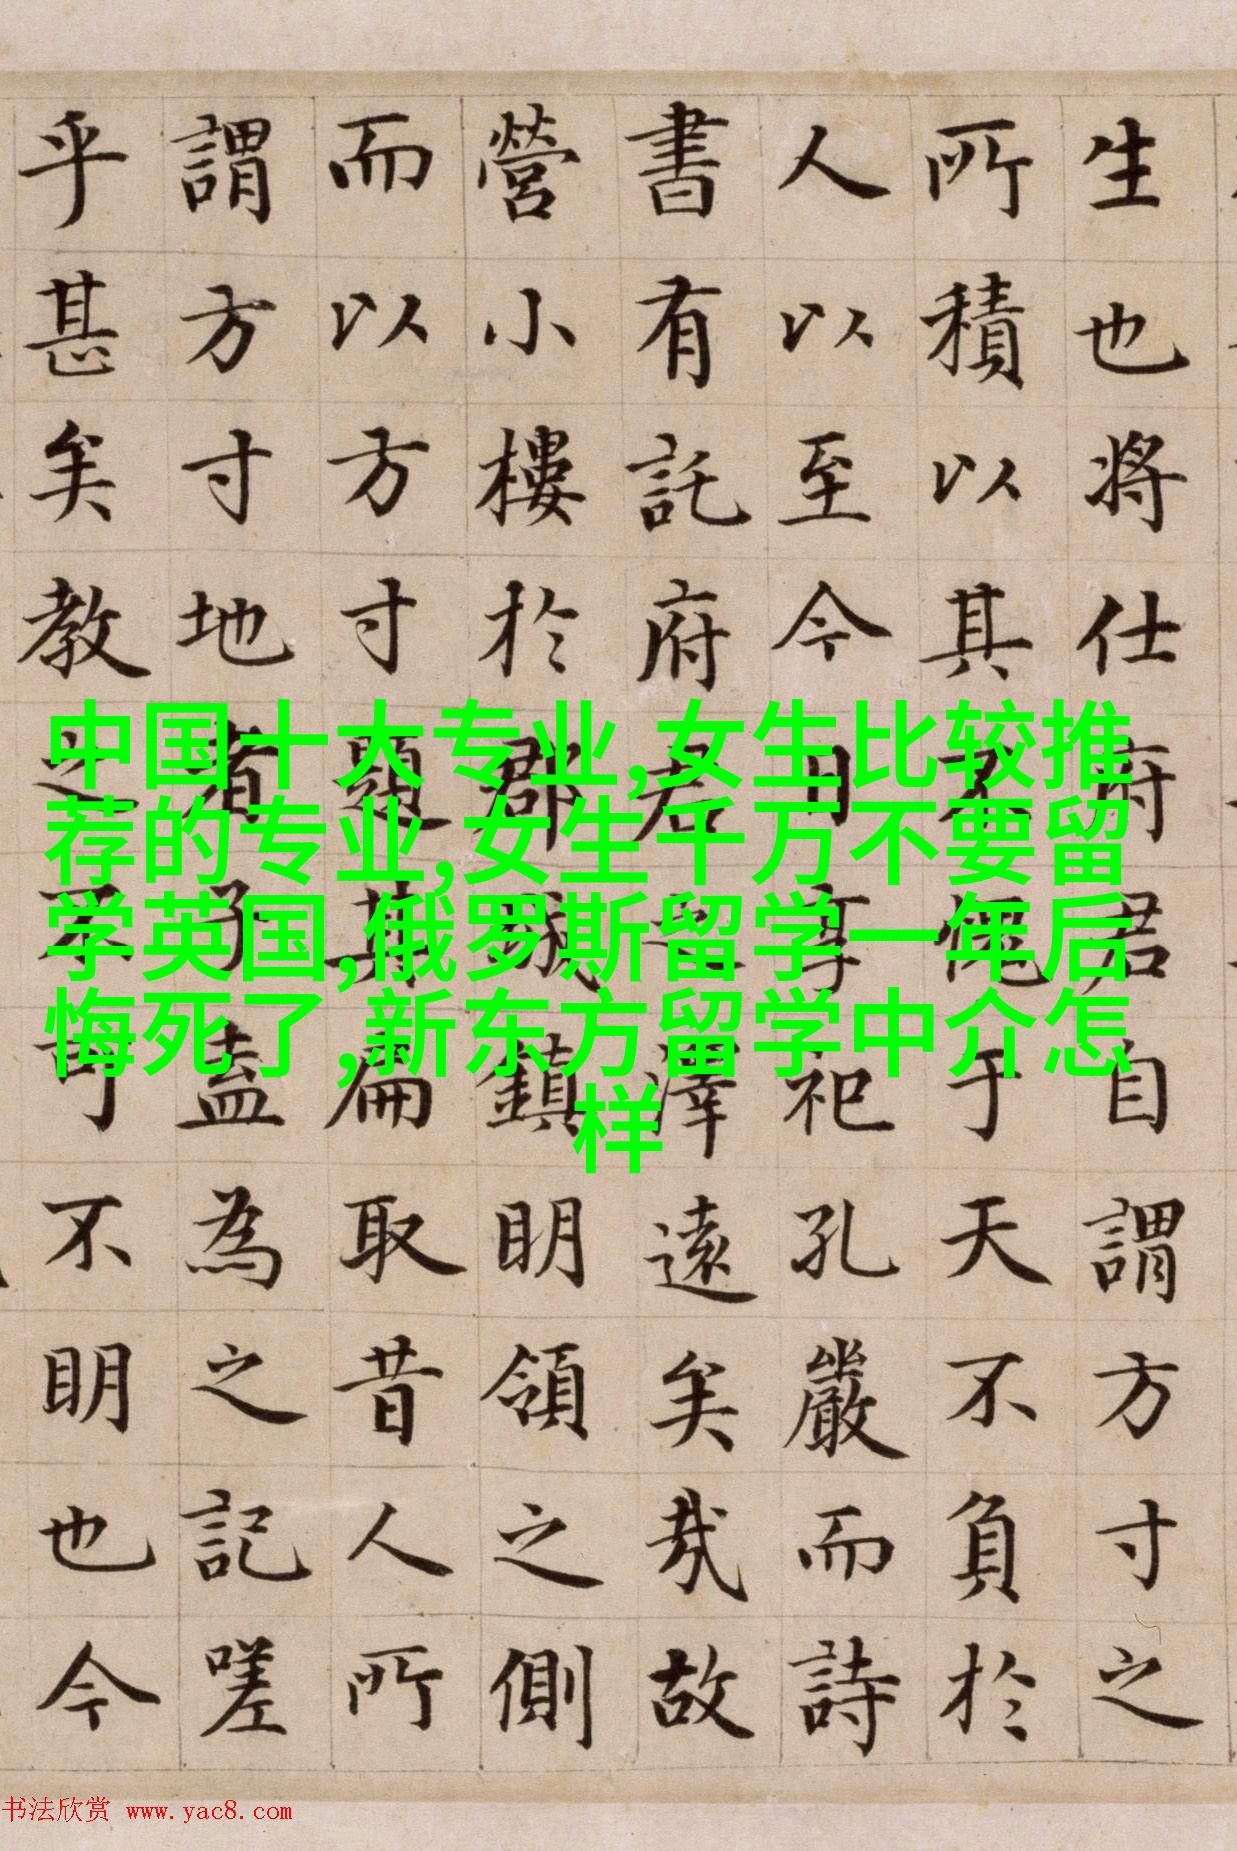 生也將仕府君自謂方寸之
所積以其不愧于天不負於
人以至今日享祀孔嚴而詩
書有託府君之澤遠矣哉故
營小樓於郡城鎮明領之側
而以方寸題其扁取昔人所
謂方寸地者子盍為之記嗟
乎甚矣教之不可不明也今
中国十大专业,女生比较推
荐的专业,女生千万不要留
学英国,俄罗斯留学一年后
悔死了,新东方留学中介怎
样
书法欣赏 www.yac8.com